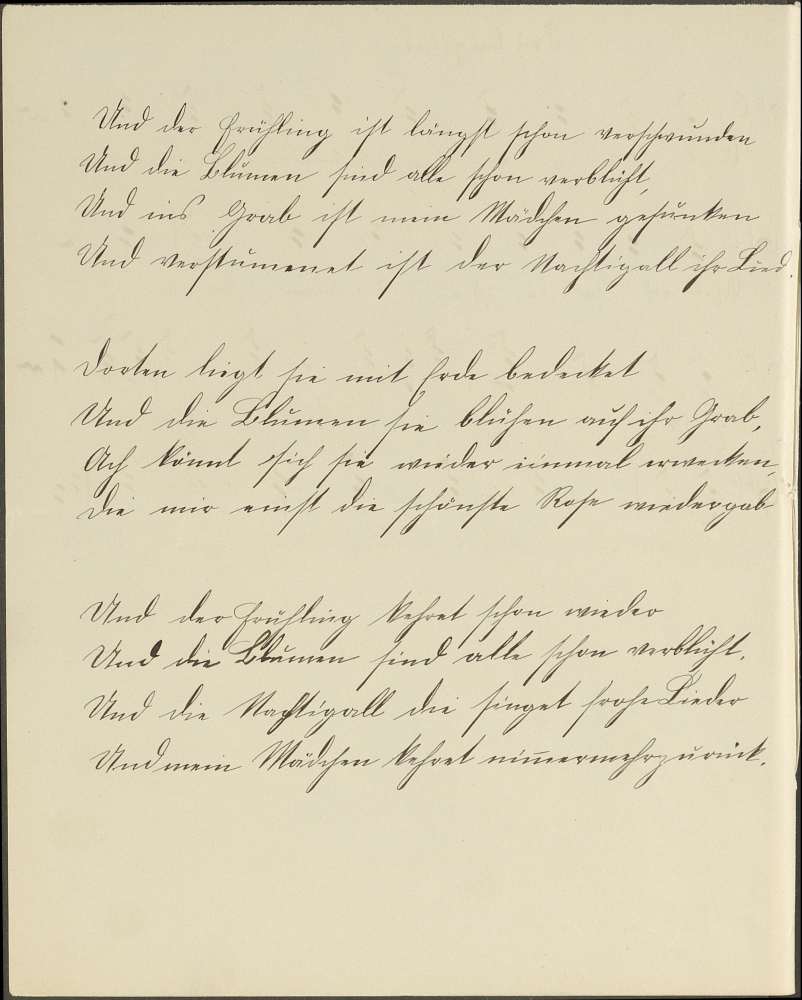 Und der Frühling ist längst schon verschwunden
Und die Blumen sind alle schon verblüht,
Und ins Grab ist mein Mädchen gesunken
Und verstummenet ist der Nachtigall ihr Lied.
Dorten liegt sie mit Erde bedecket
Und die Blumen sie blühen auf ihr Grab,
Ach könnt ich sie wieder einmal erwecken,
Die mir einst die schönste Rose wiedergab
Und der Frühling kehret schon wieder
Und die Blumen sind alle schon verblüht.
Und die Nachtigall die singet frohe Lieder
Und mein Mädchen kehret nim̅ermehr zurück.